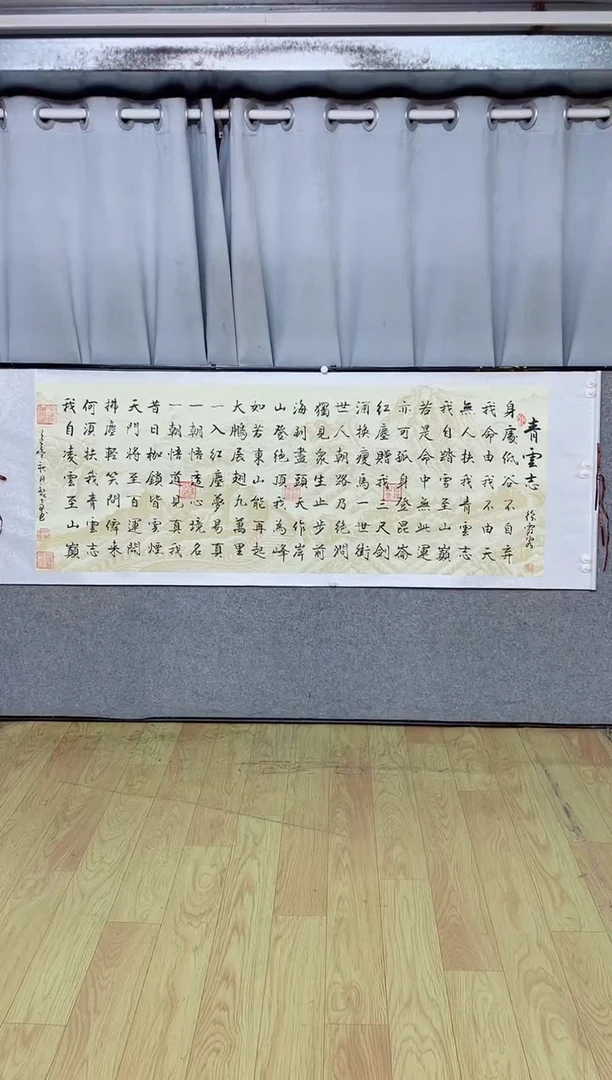 青雲志
徐霞客
身處低谷不自弃
我命由我不由天
無人扶我青雲志
我自踏雪至山巔
若是命中無此運
亦可孤身登昆崙
红塵贈我三尺劍
酒换瘦馬一世街
世人朝路乃绝澗
獨見衆生止步前
海到盡頭天作岸
山登绝頂我為峰
如若東山能再起
大鵬展翅九萬里
一入红塵夢易真
一朝悟透心境名
一朝悟道見真我
昔日枷鎖皆雲煙
天門將至百運開
拂塵輕笑問儒来
何須扶我青雲志
我自凌雲至山巔